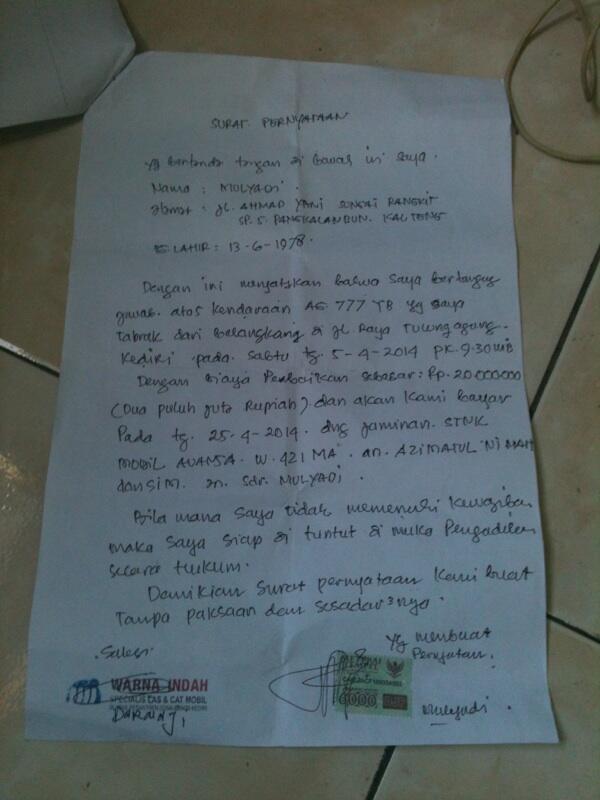 SURAT PERNYATAAN
Yg bertanda tangan di bawah ini saya.
Nama : MULYADI.
Alamat : JL. AHMAD YANI SUNGAI RANGKIT
SP. 5. PANGKALANBUN. KALTENG
LAHIR : 13-6-1978.
Dengan ini menyatakan bahwa saya bertangug
jawab. atas kendaraan AG 777 YB yg saya
Tabrak dari Belangkang di jl. Raya Tulungagung.
Kediri pada. Sabtu tg. 5-4-2014 PK. 9.30 WIB
Dengan Biaya Perbaikan sebesar: Rp. 20.000000
(Dua puluh juta Rupiah). dan akan kami bayar
Pada tg. 25-4-2014. dng jaminan. STNK
MOBIL AVANSA. W. 421 MA. an. AZIMATUL NI MAH
dan SIM. an. sdr. MULYADI.
Bila mana saya tidak memenuhi kewajiban
maka saya siap di tuntut di muka Pengadilan
secara hukum.
Demikian surat pernyataan kami buat
Tanpa paksaan dan sesadar²nya.
Yg menbuat
Pernyatan.
Saksi
WARNA INDAH
SPECIALIS LAS & CAT MOBIL
6000
Mulyadi.